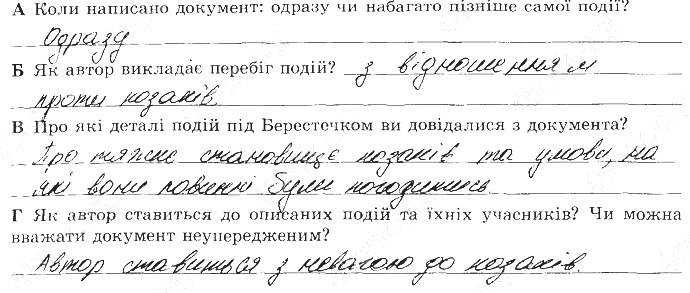 А Коли написано документ: одразу чи набагато пізніше самої події?
Одразу
Б Як автор викладає перебіг подій? з відношенням
проти козаків.
В Про які деталі подій під Берестечком ви довідалися з документа?
Про тяжке становище козаків та умови, на
які вони повинні були погодитись.
Г Як автор ставиться до описаних подій та їхніх учасників? Чи можна
вважати документ неупередженим?
Автор ставиться з невагою до козаків.